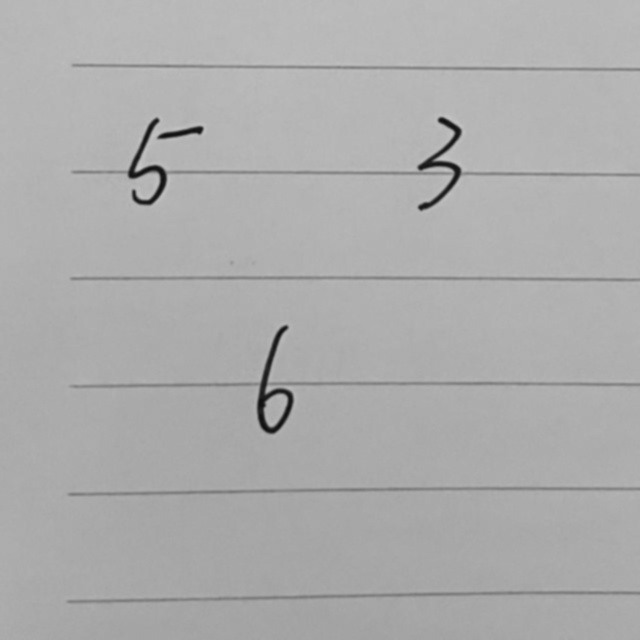 5 3
6